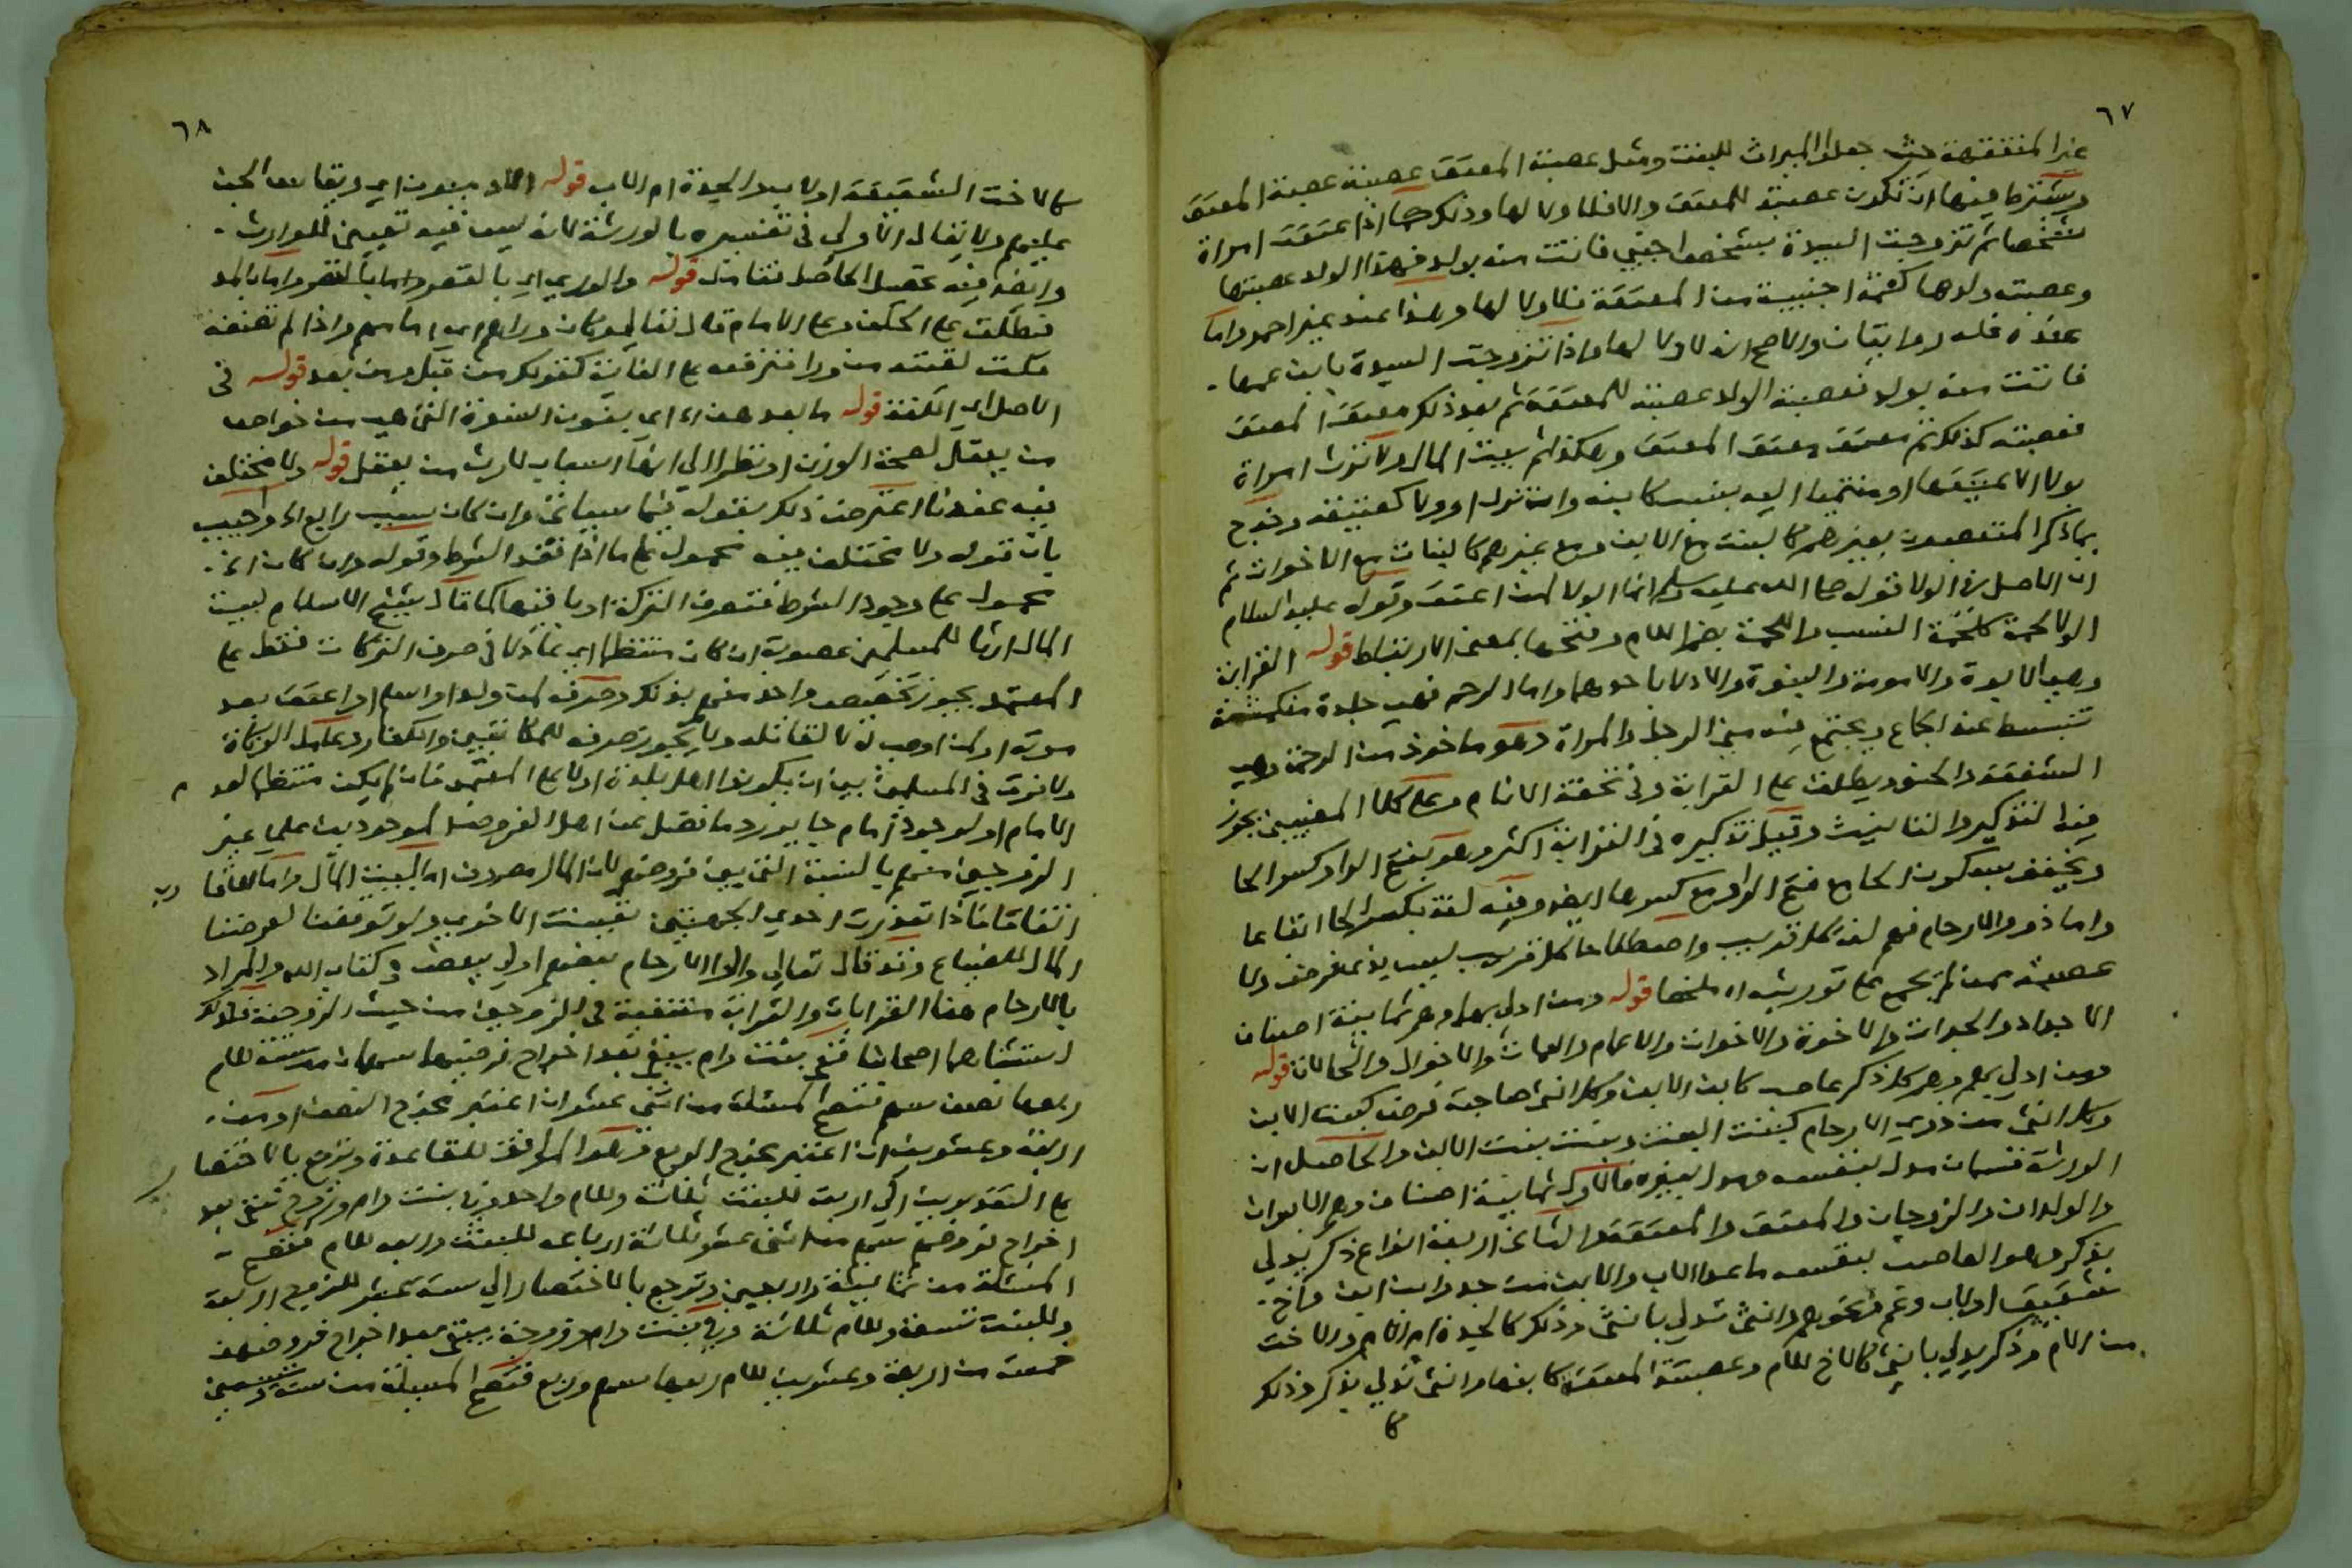 ٦٧
غير المتفقهة حيث جعلوا الميراث للبنت ومثل عصبة المعتق عصبة عصبة المعتق
ويشترط فيها ان تكون عصبة للمعتق والا فلا ولا لها وذلك كما اذا عتقت امراة
شخصا ثم تزوجت السيدة بشخص اجنبي فاتت منه بولد فهذا الولد عصبتها
وعصبت ولدها كعمه اجنبية من المعتقة فلا ولا لها وهذا عند غير احمد واما
عنده فله روايتان والاصح انه لا ولا لها واذا تزوجت السيدة بابن عمها
فاتت منه بولد فعصبة الولد عصبة للمعتقة ثم بعد ذلك معتق المعتق
فعصبته كذلك ثم معتق معتق المعتق وهكذا ثم بيت المال ولا ترث امراة
بولا الا عتيقها او منتميا اليه بنسب كابنه وان نزل او ولا كعتيقه وخرج
بما ذكر المتعصبون بغيرهم كالبنت مع الابن ومع غيرهم كالبنات مع الاخوات ثم
ان الاصل في الولا قوله صلى الله عليه وسلم انما الولا لمن اعتق وقوله عليه السلام
الولا لحمة كلحمة النسب واللحمة بضم اللام وفتحها بمعنى الارتباط قوله القرابة
وهي الابوة والامومة والبنوة والادلا باحدهما واما الرحم فهي جلدة منكمشة
تنبسط عند الجماع ويجتمع فيه مني الرجل والمراة وهو ماخوذ من الرحمة وهي
الشفقة والحنو ويطلق على القرابة وفي تحفة الانام وعلى كلا المعنيين يجوز
فيه التذكير والتانيث وقيل تذكيره في القرابة اكثر وهو بفتح الواو وكسر الحا
ويخفف بسكون الحا مع فتح الواو مع كسرها ايضا وفيه لغة بكسر الحا اتفاعا
واما ذوو الارحام فهم لغة كل قريب واصطلاحا كل قريب ليس بذي فرض ولا
عصبة ممن لم يجمع على توريثه اه ملخصا قوله ومن ادلى بهم وهم ثمانية اصناف
الاجداد والجدات والاخوة والاخوات والاعمام والعمات والاخوال والخالات قوله
ومن ادلى بهم وهم كل ذكر عاصب كابن الابن وكل انثى صاحبة فرض كبنت الابن
وكل انثى من ذوي الارحام كبنت البنت وبنت بنت الابن والحاصل ان
الورثة قسمان مدل بنفسه ومدل بغيره فالاول ثمانية اصناف وهم الابوان
والولدان والزوجان والمعتق والمعتقة والثاني اربعة انواع ذكر يدلي
بذكر وهو العاصب بنفسه ما عدا الاب والابن من جد وابن ابن واخ
شقيق او لاب وعم ونحوهم وانثى تدلي بانثى وذلك كالجدة ام الام والاخت
من الام وذكر يدلي بانثى كالاخ للام وعصبة المعتقة كابنها وانثى تدلي بذكر وذلك
كا
٦٨
كالاخت الشقيقة او لاب والجدة ام الاب قوله
عليهم ولا يقال الاولى في تفسيره بالورثة لانه ليس فيه تعيين للوارث
وايضا فيه تحصيل الحاصل فتامل قوله والوري اي بالقصر واما بالمد
فيطلق على الخلف وعلى الامام قال تعالى وكان وراهم اي امامهم واذا لم تضفه
قلت لقيته من ورا فترفعه على الغاية كقولك من قبل ومن بعد قوله في
الاصل اي اللغة قوله ما بعد هذا اي
من يعقل لصحة الوزن او نظرا الى انها اسباب لارث من يعقل قوله ولا يختلف
فيه عندنا اعترض ذلك بقوله فيما سياتي وان كان سبب رابع اه واجيب
بان قوله ولا يختلف فيه محمول على ما اذا فقد الشرط وقوله وان كان الخ
محمول على وجود الشرط فتصرف التركة او باقيها كما قال شيخ الاسلام لبيت
المال ارثا للمسلمين عصوبة ان كان منتظما اي عادلا في صرف التركات فقط على
المعتمد يجوز تخصيص واحد منهم بذلك وصرفه لمن ولد او اسلم او اعتق بعد
موته او لمن اوصى له لا لقاتله ولا يجوز صرفه للمكاتبين والكفار
ولا فرق في المسلمين بين ان يكونوا اهل بلدة او لا على المعتمد فان لم يكن منتظما لعدم
الامام او لوجود امام جاير رد ما فضل عن اهل الفروض الموجودين على غير
الزوجين منهم بالنسبة التي بين فروضهم لان المال مصروف اما لبيت المال
اتفاقا فاذا تعذرت احدى الجهتين تعينت الاخرى ولو توقفنا لعرضنا
المال للضياع وقد قال تعالى واولوا الارحام بعضهم اولى ببعض في كتاب الله والمراد
بالارحام هنا القرابات والقرابة منتفية في الزوجين من حيث الزوجية فلذلك
استثناهما اصحابنا ففي بنت وام يبقى بعد اخراج فرضيهما سهمان من ستة للام
ربعهما نصف سهم فتصح المسئلة من اثني عشر ان اعتبر مخرج النصف او من
اربعة وعشرين ان اعتبر مخرج الربع وهو الموافق للقاعدة وترجع بالاختصار
على التقديرين الى اربعة للبنت ثلاثة وللام واحد وفي بنت وام وزوج يبقى بعد
اخراج فروضهم سهم من اثني عشر ثلاثة ارباعه للبنت وربعه للام فتصح
المسئلة من ثمانية واربعين وترجع بالاختصار الى ستة عشر للزوج اربعة
وللبنت تسعة وللام ثلاثة وفي بنت وام وزوجة يبقى بعد اخراج فروضهن
خمسة من اربعة وعشرين للام ربعها سهم وربع فتصح المسئلة من ستة وتسعين